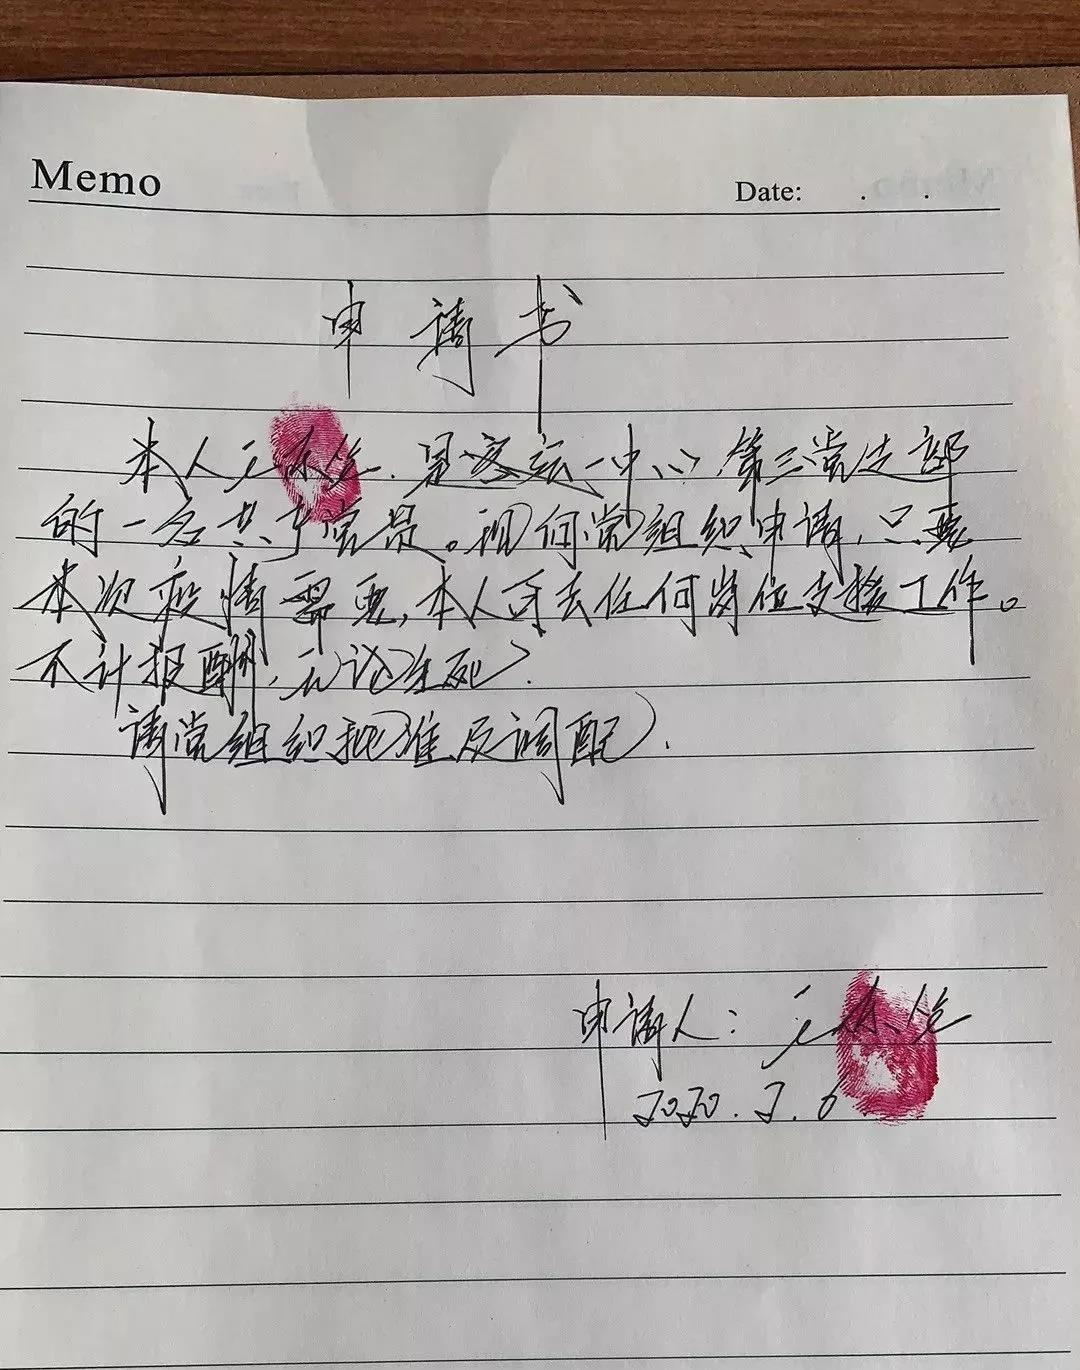 Memo
Date: . .
申请书
本人 ，是客运一中心第三党支部
的一名共产党员。现向党组织申请，只要
本次疫情需要，本人可去任何岗位支援工作。
不计报酬，无论生死。
请党组织批准及调配。
申请人：
2020.2.6